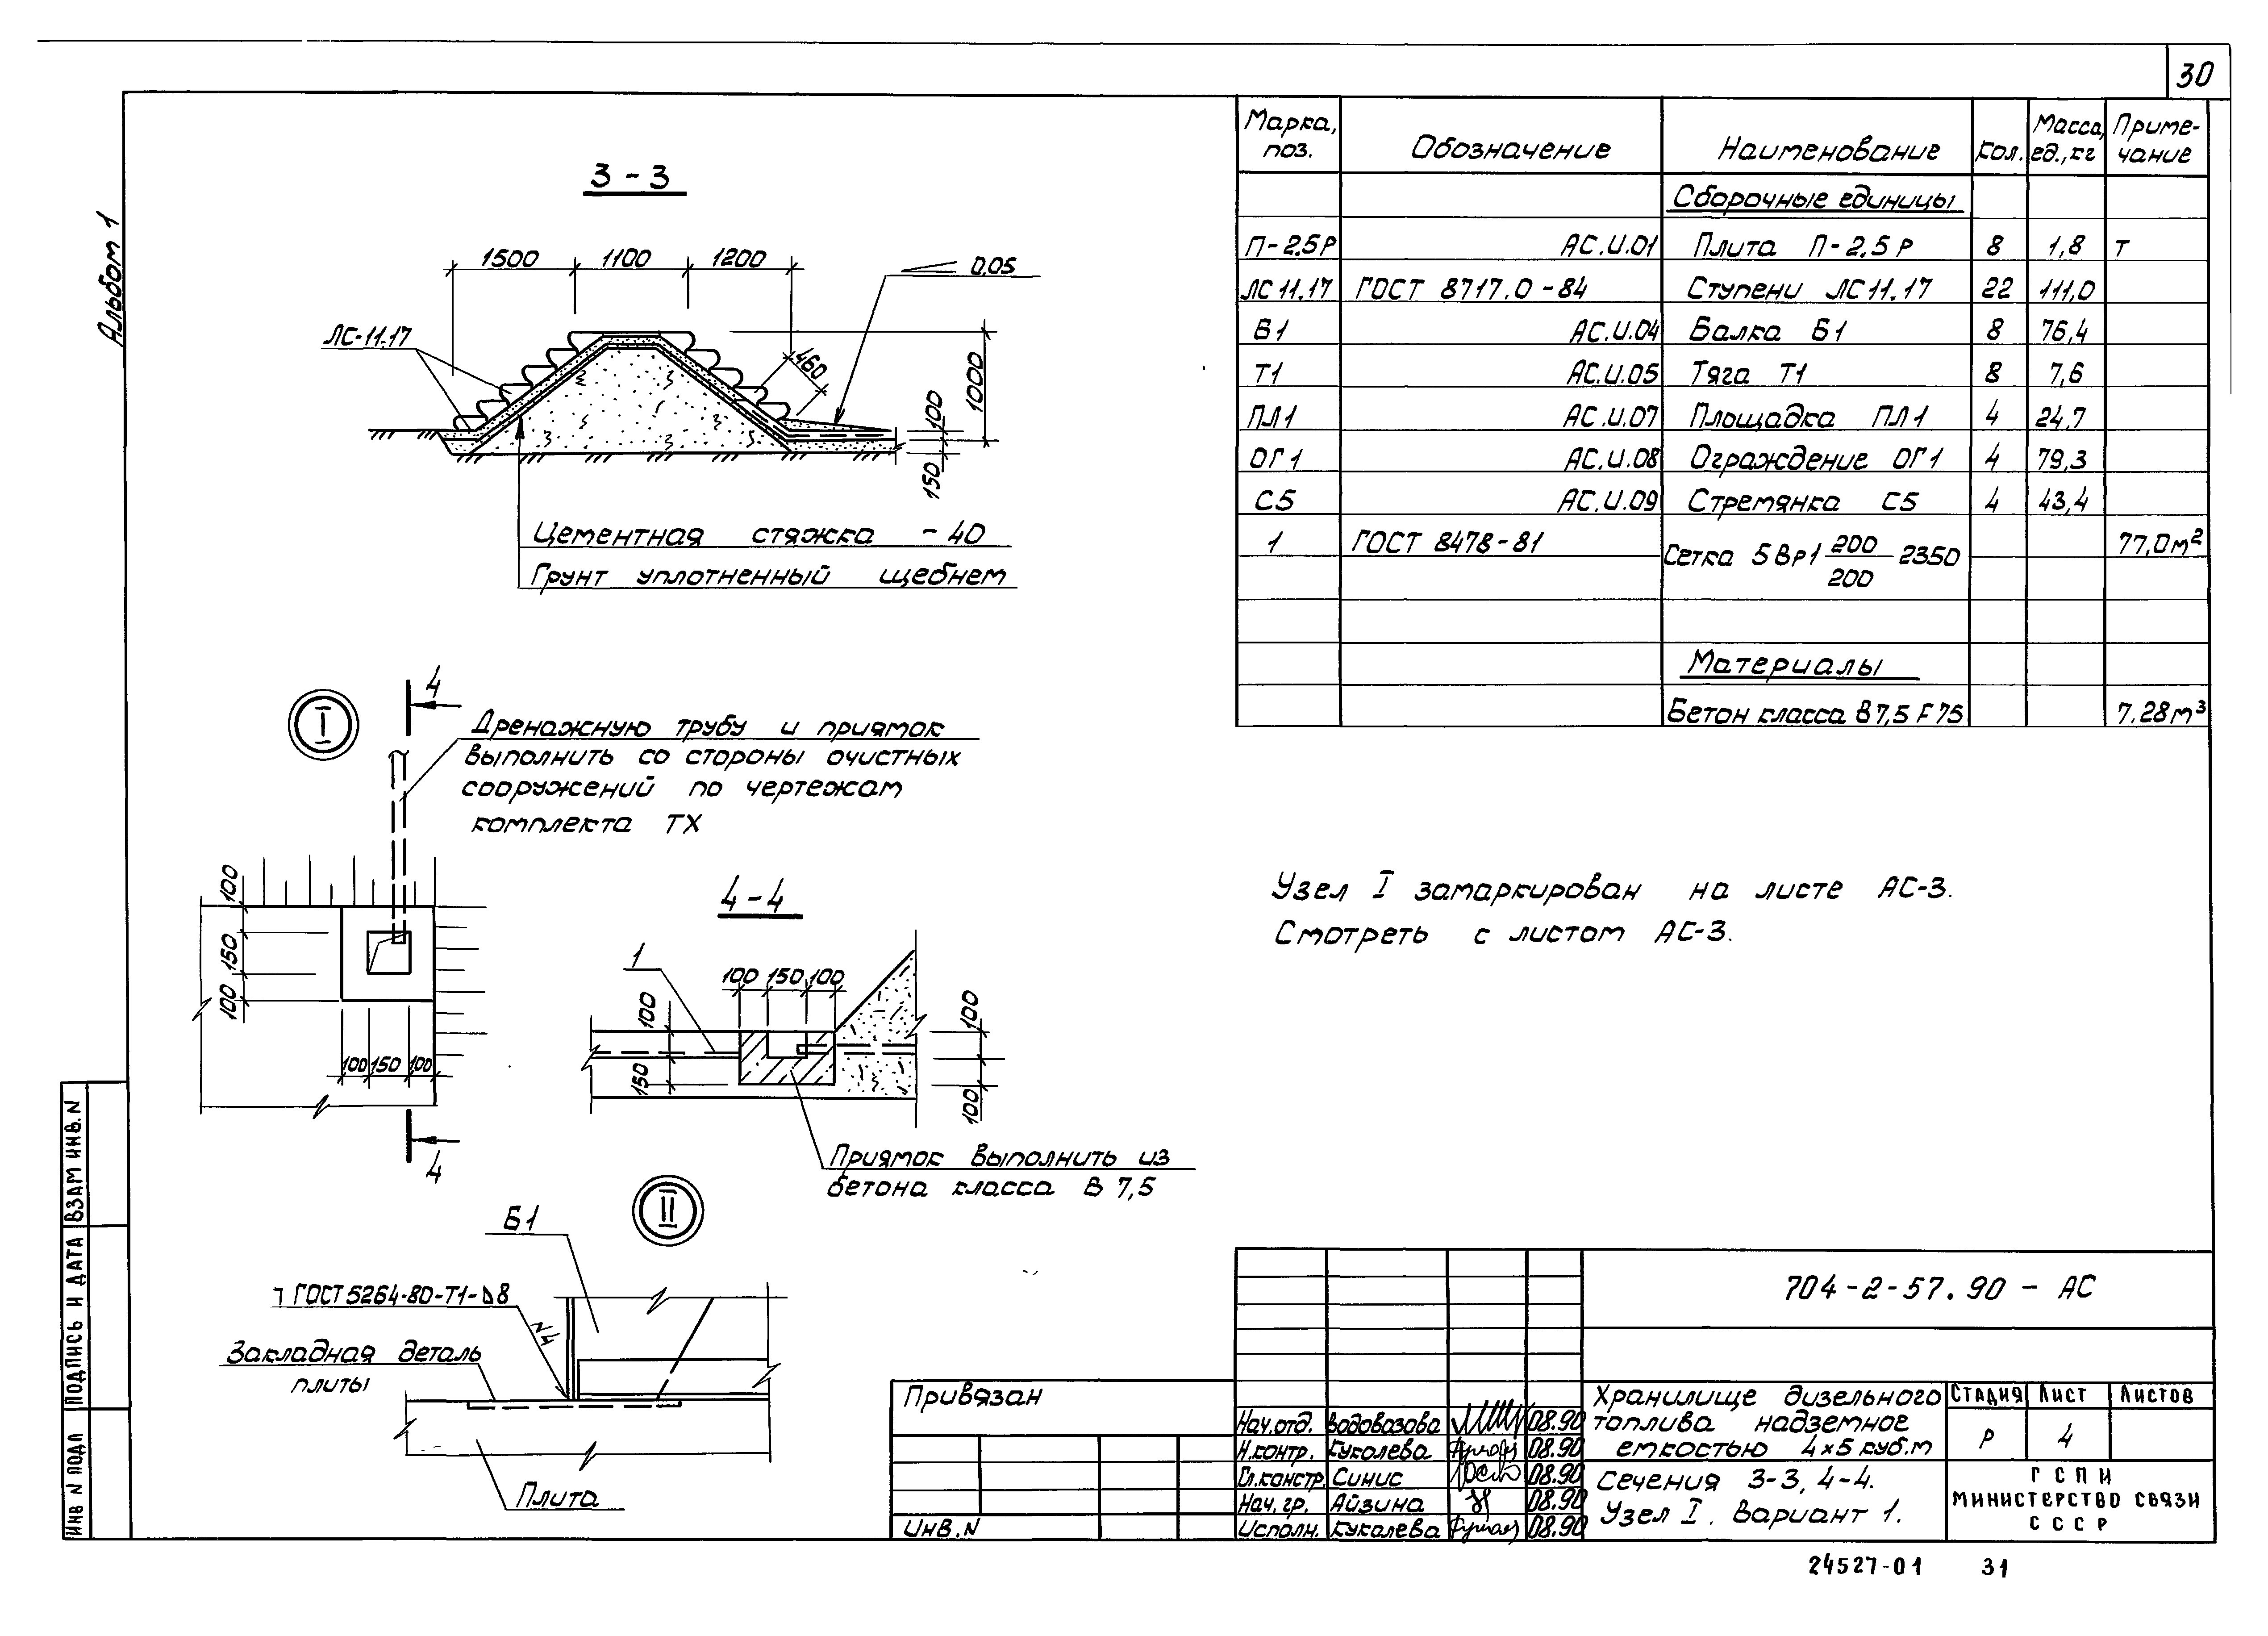 30
Альбом 1
3-3
1500 1100 1200
0.05
ЛС-11.17
460
1000
100
150
Цементная стяжка - 40
Грунт уплотненный щебнем
Марка, поз. Обозначение Наименование Кол. Масса, ед., кг Приме-чание
Сборочные единицы
П-2.5Р АС.И.01 Плита П-2.5Р 8 1,8 т
ЛС 11.17 ГОСТ 8717.0-84 Ступени ЛС11.17 22 111,0
Б1 АС.И.04 Балка Б1 8 76,4
Т1 АС.И.05 Тяга Т1 8 7,6
ПЛ1 АС.И.07 Площадка ПЛ1 4 24,7
ОГ1 АС.И.08 Ограждение ОГ1 4 79,3
С5 АС.И.09 Стремянка С5 4 43,4
1 ГОСТ 8478-81 Сетка 5Вр1 200/200 2350 77,0м²
Материалы
Бетон класса В7,5 F75 7.28м³
I
4
Дренажную трубу и приямок
выполнить со стороны очистных
сооружений по чертежам
комплекта ТХ
100
150
100
100 150 100
4
4-4
1
100 150 100
100
150
100
100
Приямок выполнить из
бетона класса В 7,5
Узел I замаркирован на листе АС-3.
Смотреть с листом АС-3.
II
Б1
ГОСТ 5264-80-Т1-⊿8
N4
Закладная деталь
плиты
Плита
ИНВ N ПОДЛ ПОДПИСЬ И ДАТА ВЗАМ ИНВ.N
Привязан
ИНВ.N
704-2-57.90 - АС
Нач.отд. Водовозова 08.90
Н.контр. Куколева 08.90
Гл.констр. Синис 08.90
Нач. гр. Айзина 08.90
Исполн. Куколева 08.90
Хранилище дизельного
топлива надземное
емкостью 4×5 куб.м
СТАДИЯ ЛИСТ ЛИСТОВ
Р 4
Сечения 3-3, 4-4.
Узел I. Вариант 1.
ГСПИ
МИНИСТЕРСТВО СВЯЗИ
СССР
24527-01 31